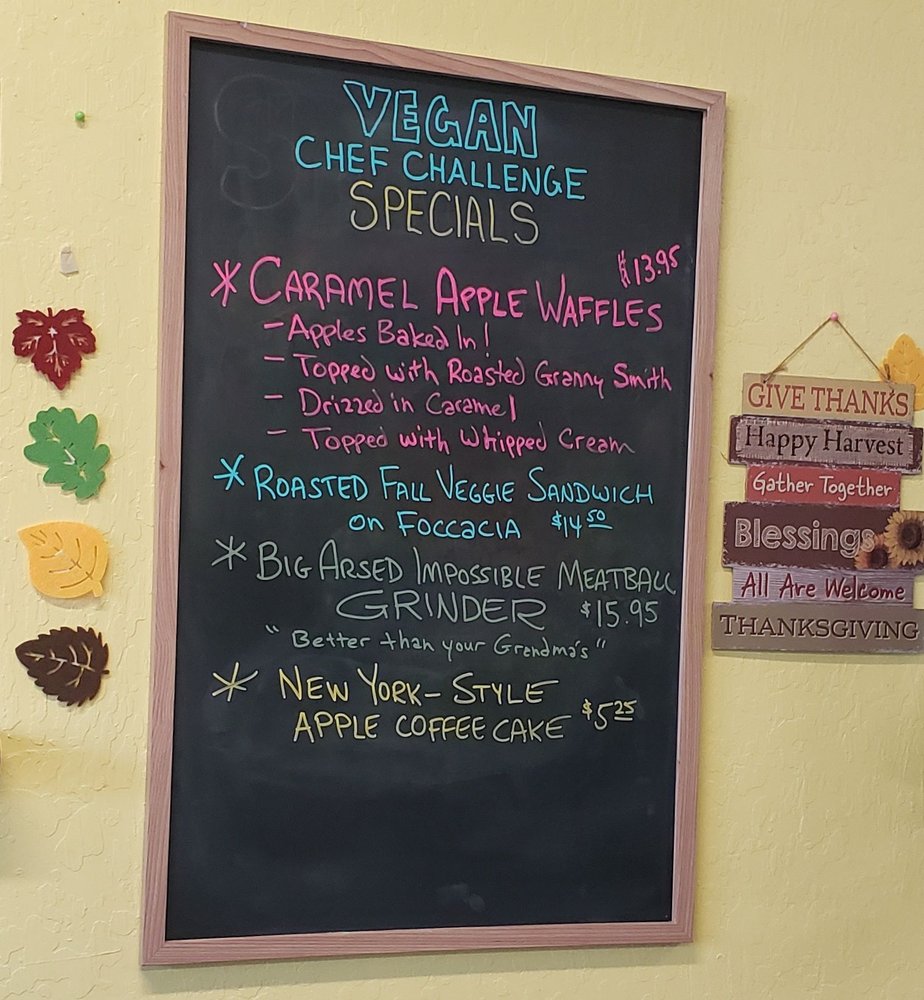 VEGAN
CHEF CHALLENGE
SPECIALS
$13.95
* CARAMEL APPLE WAFFLES
- Apples Baked In!
- Topped with Roasted Granny Smith
- Drizzed in Caramel
- Topped with Whipped Cream
* ROASTED FALL VEGGIE SANDWICH
on FOCCACIA $14 50
* BIG ARSED IMPOSSIBLE MEATBALL
GRINDER $15.95
"Better than your Grandma's"
* NEW YORK-STYLE
APPLE COFFEE CAKE $5 25
GIVE THANKS
Happy Harvest
Gather Together
Blessings
All Are Welcome
THANKSGIVING